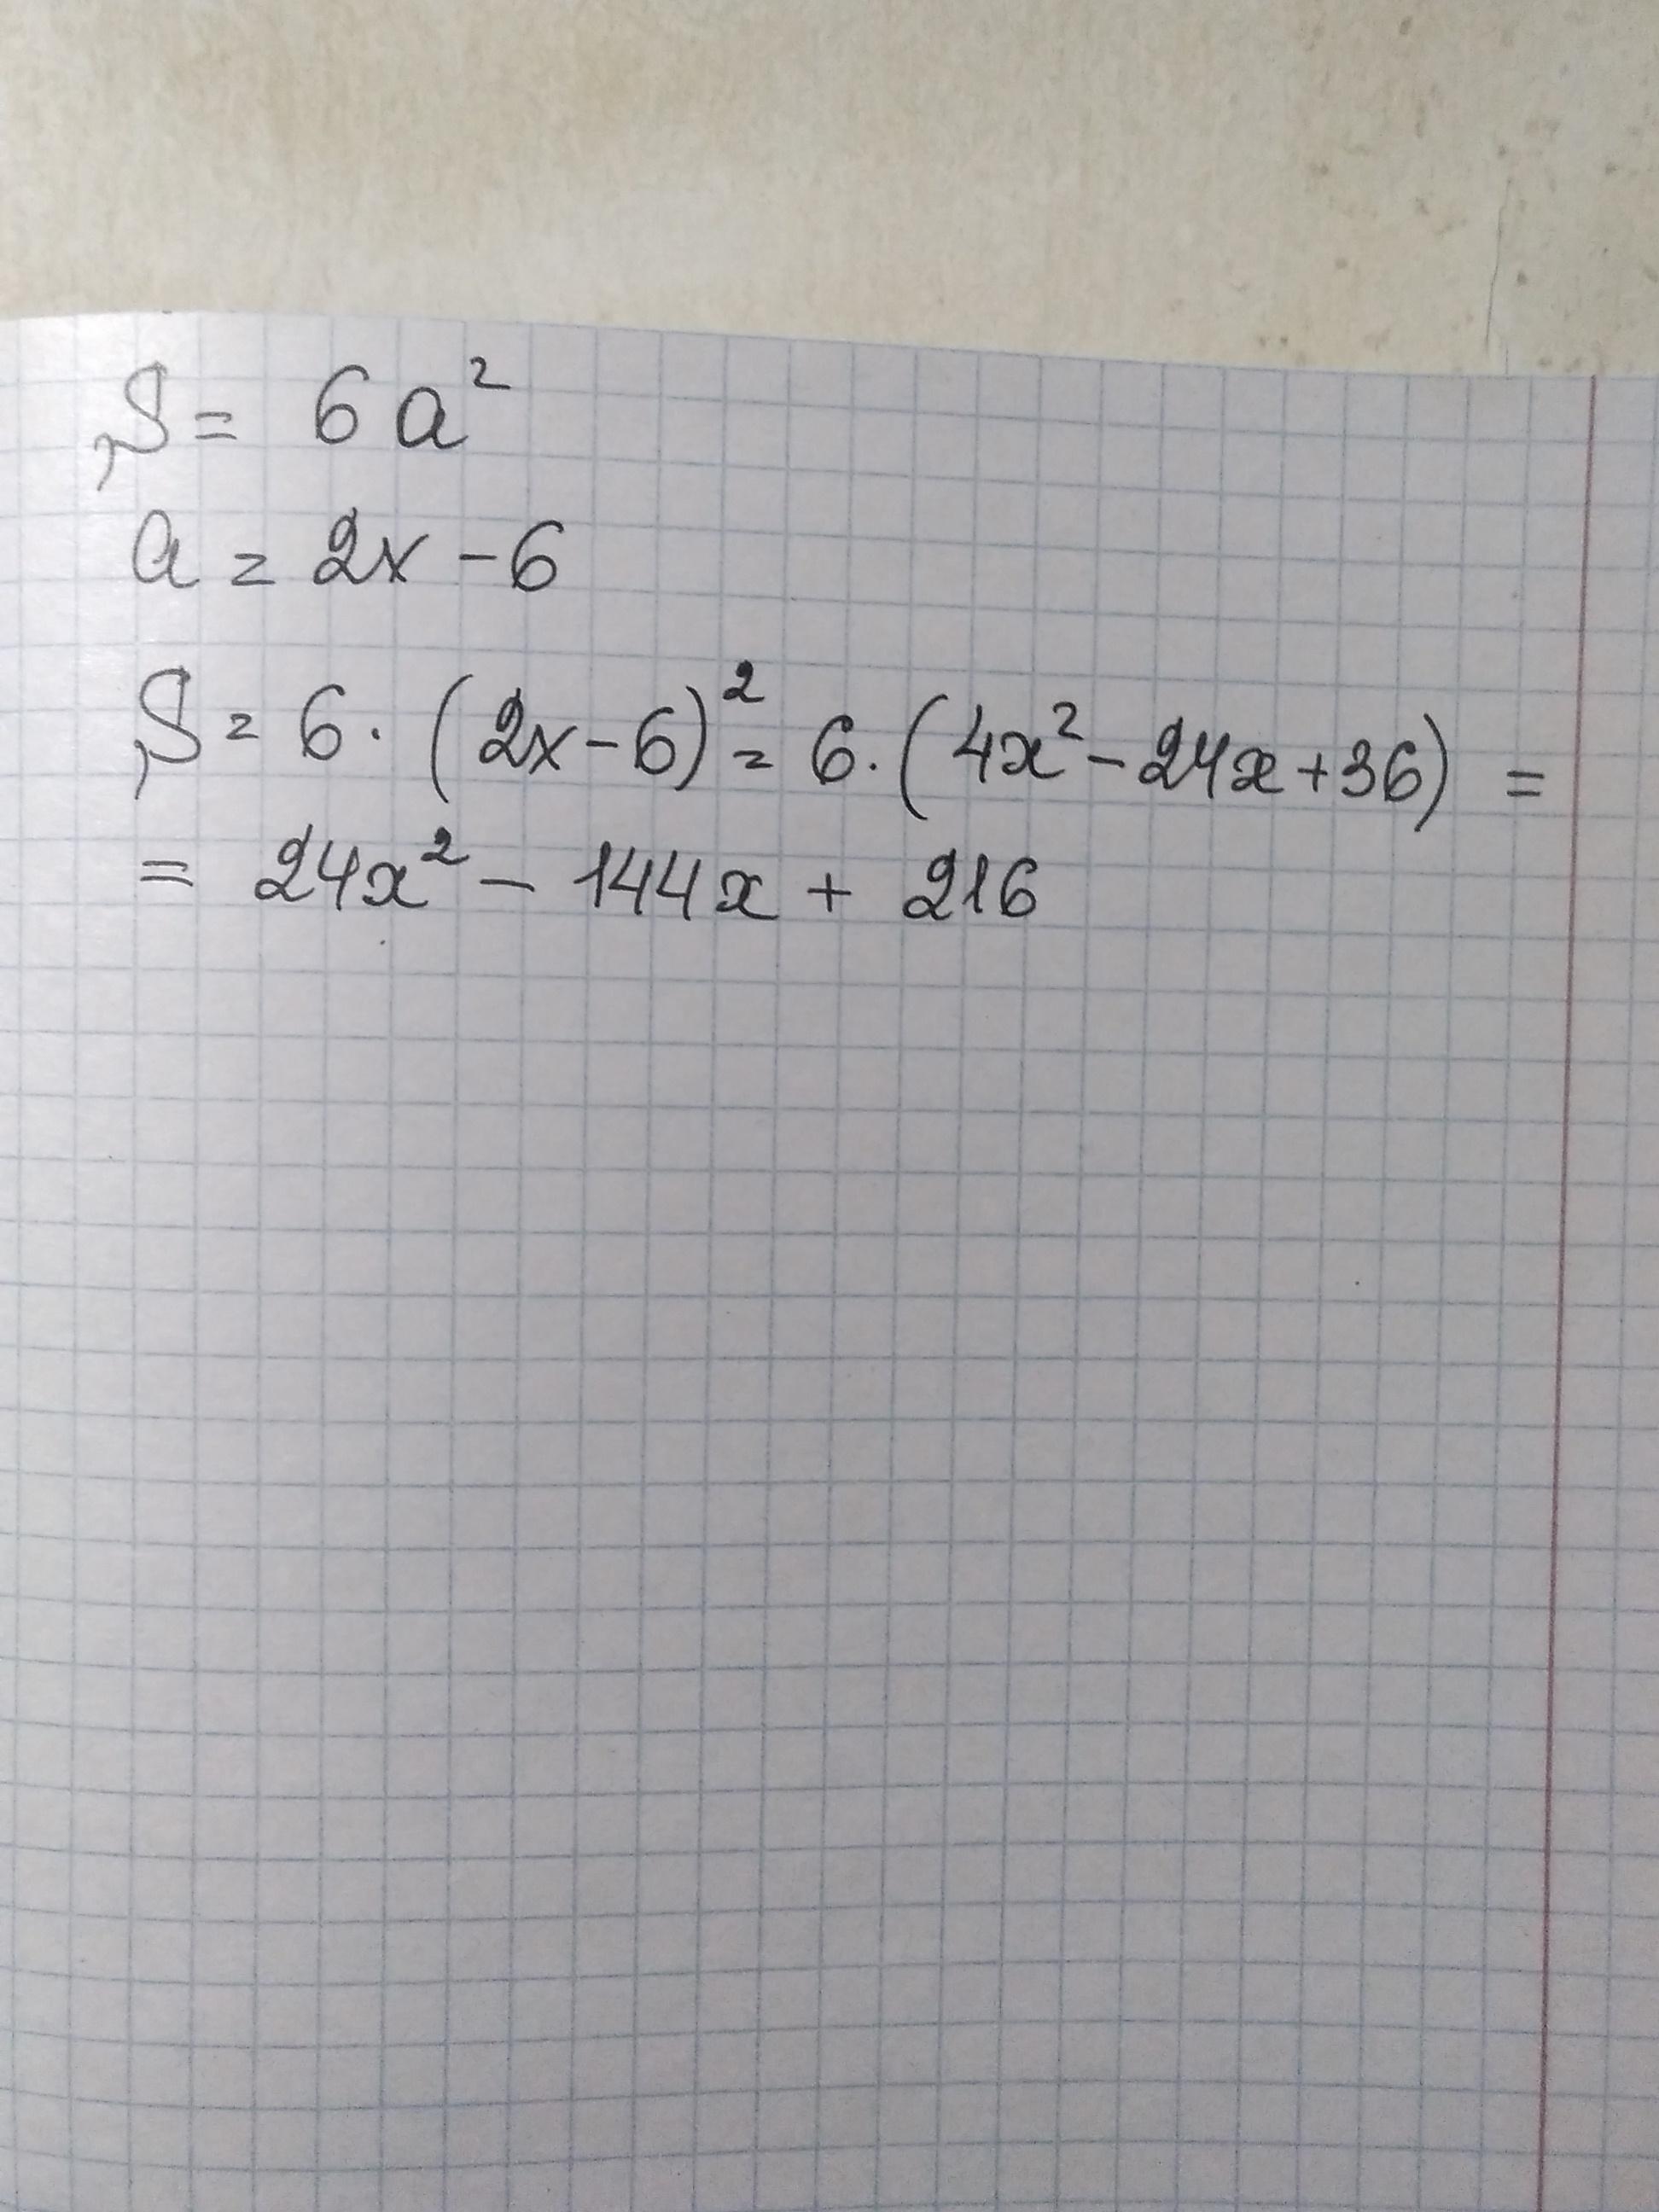 S = 6a²
a = 2x - 6
S = 6 · (2x - 6)² = 6 · (4x² - 24x + 36) =
= 24x² - 144x + 216